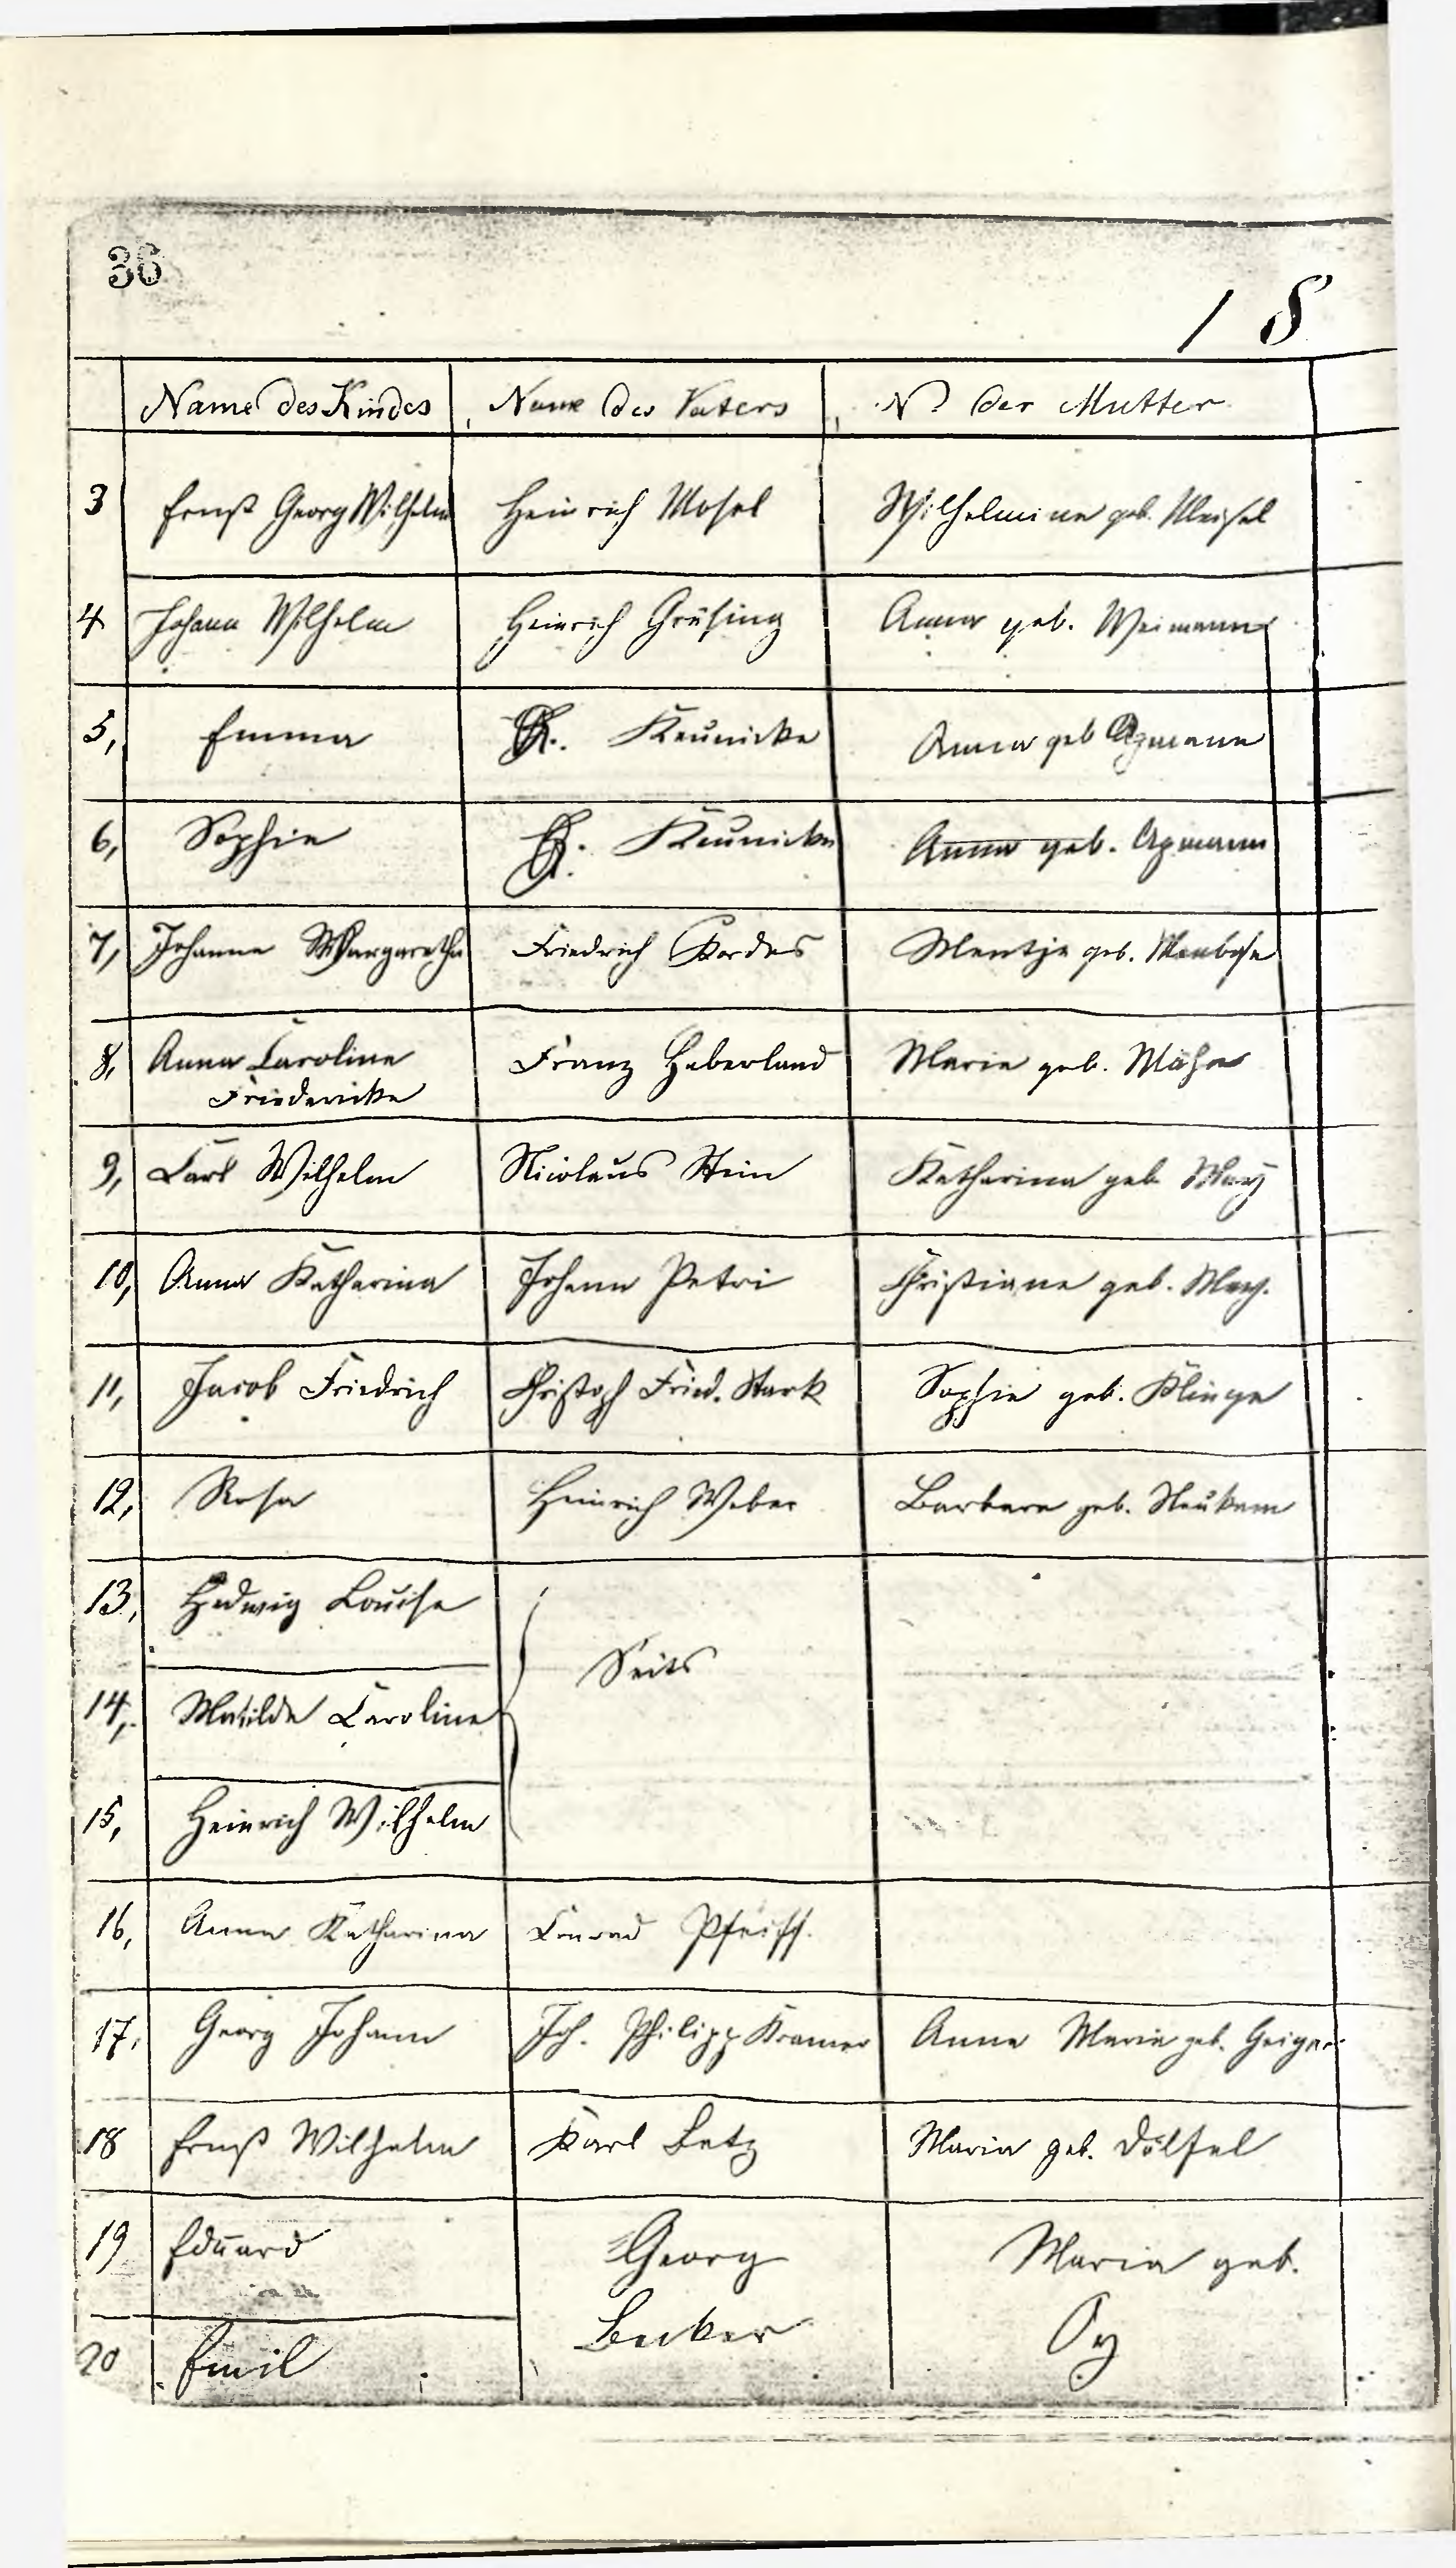 36
1 8
Name des Kindes Name des Vaters N. der Mutter
3 Ernst Georg Wilhelm Heinrich Mosel Wilhelmine geb. Meisel
4 Johann Wilhelm Heinrich Grüsing Anna geb. Weimann
5, Emma Keunicke Anna geb
6, Sophie Keunicke Anna geb.
7, Johanne Margaretha Friedrich Kordes Mentje geb.
8, Anna Caroline Franz Haberland Marie geb.
Friedericke
9, Carl Wilhelm Nicolaus Stein Katharina geb May
10, Anna Katharina Johann Petri Christiane geb. May.
11, Jacob Friedrich Christoph Fried. Stark Sophie geb. Klinge
12, Rosa Heinrich Weber Barbara geb. Neukam
13, Hedwig Louise
Seits
14, Matilde Caroline
15, Heinrich Wilhelm
16, Anna Katharina Conrad Pfeiff.
17, Georg Johann Joh. Philipp Kramer Anna Maria geb. Geiger
18 Ernst Wilhelm Karl Betz Maria geb. Dölfel
19 Eduard Georg Maria geb.
20 Emil Becker Oy